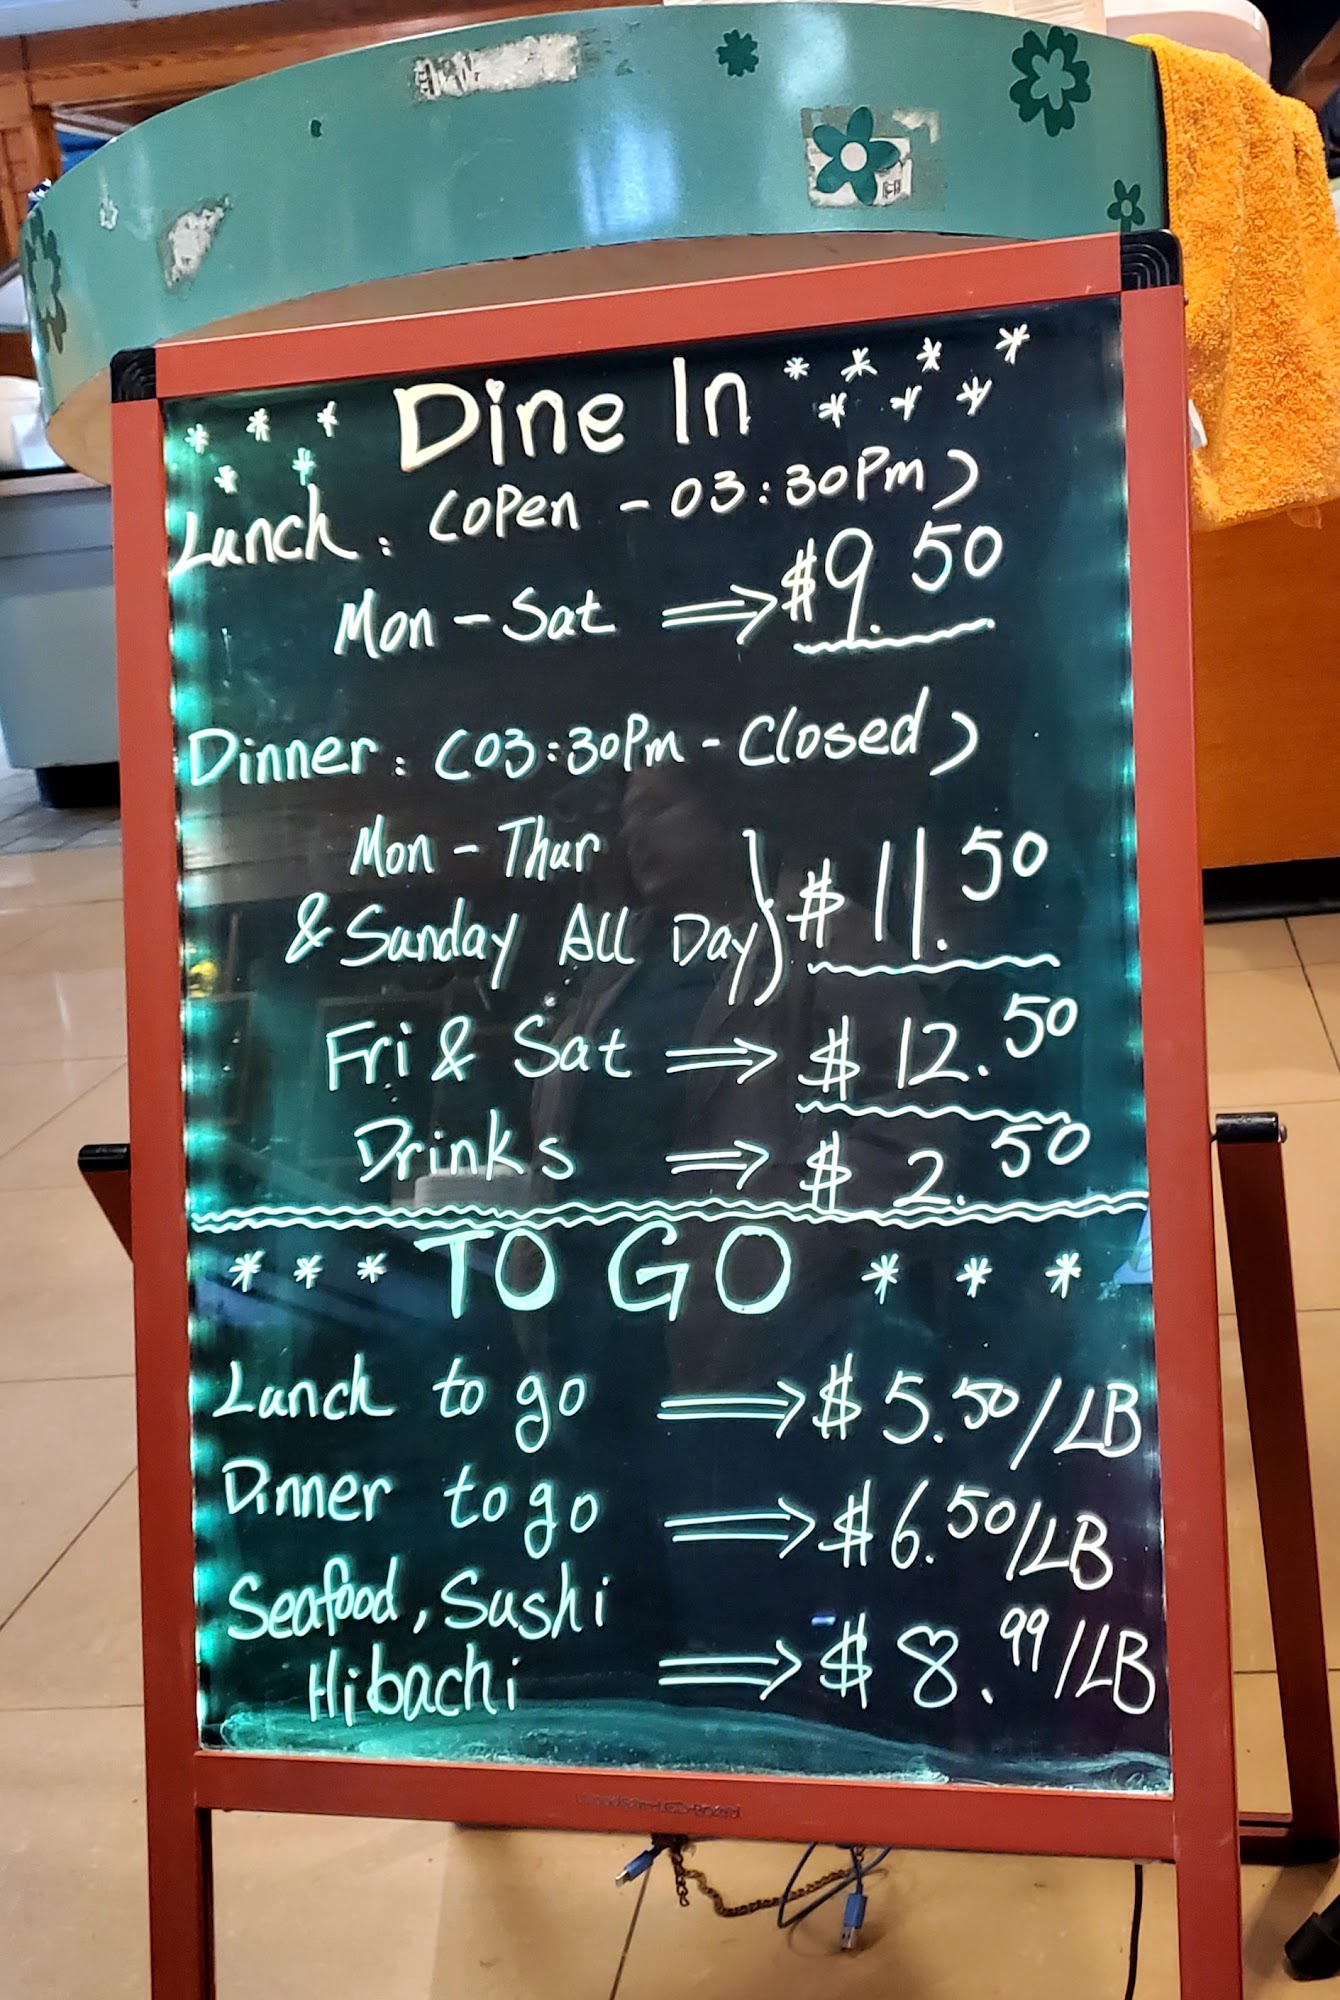 Dine In
Lunch: (open - 03:30Pm)
Mon - Sat ⇒ $9.50
Dinner: (03:30Pm - Closed)
Mon - Thur
& Sunday All Day} $11.50
Fri & Sat ⇒ $12.50
Drinks ⇒ $2.50
*** TO GO ***
Lunch to go ⇒ $5.50/LB
Dinner to go ⇒ $6.50/LB
Seafood, Sushi
Hibachi ⇒ $8.99/LB